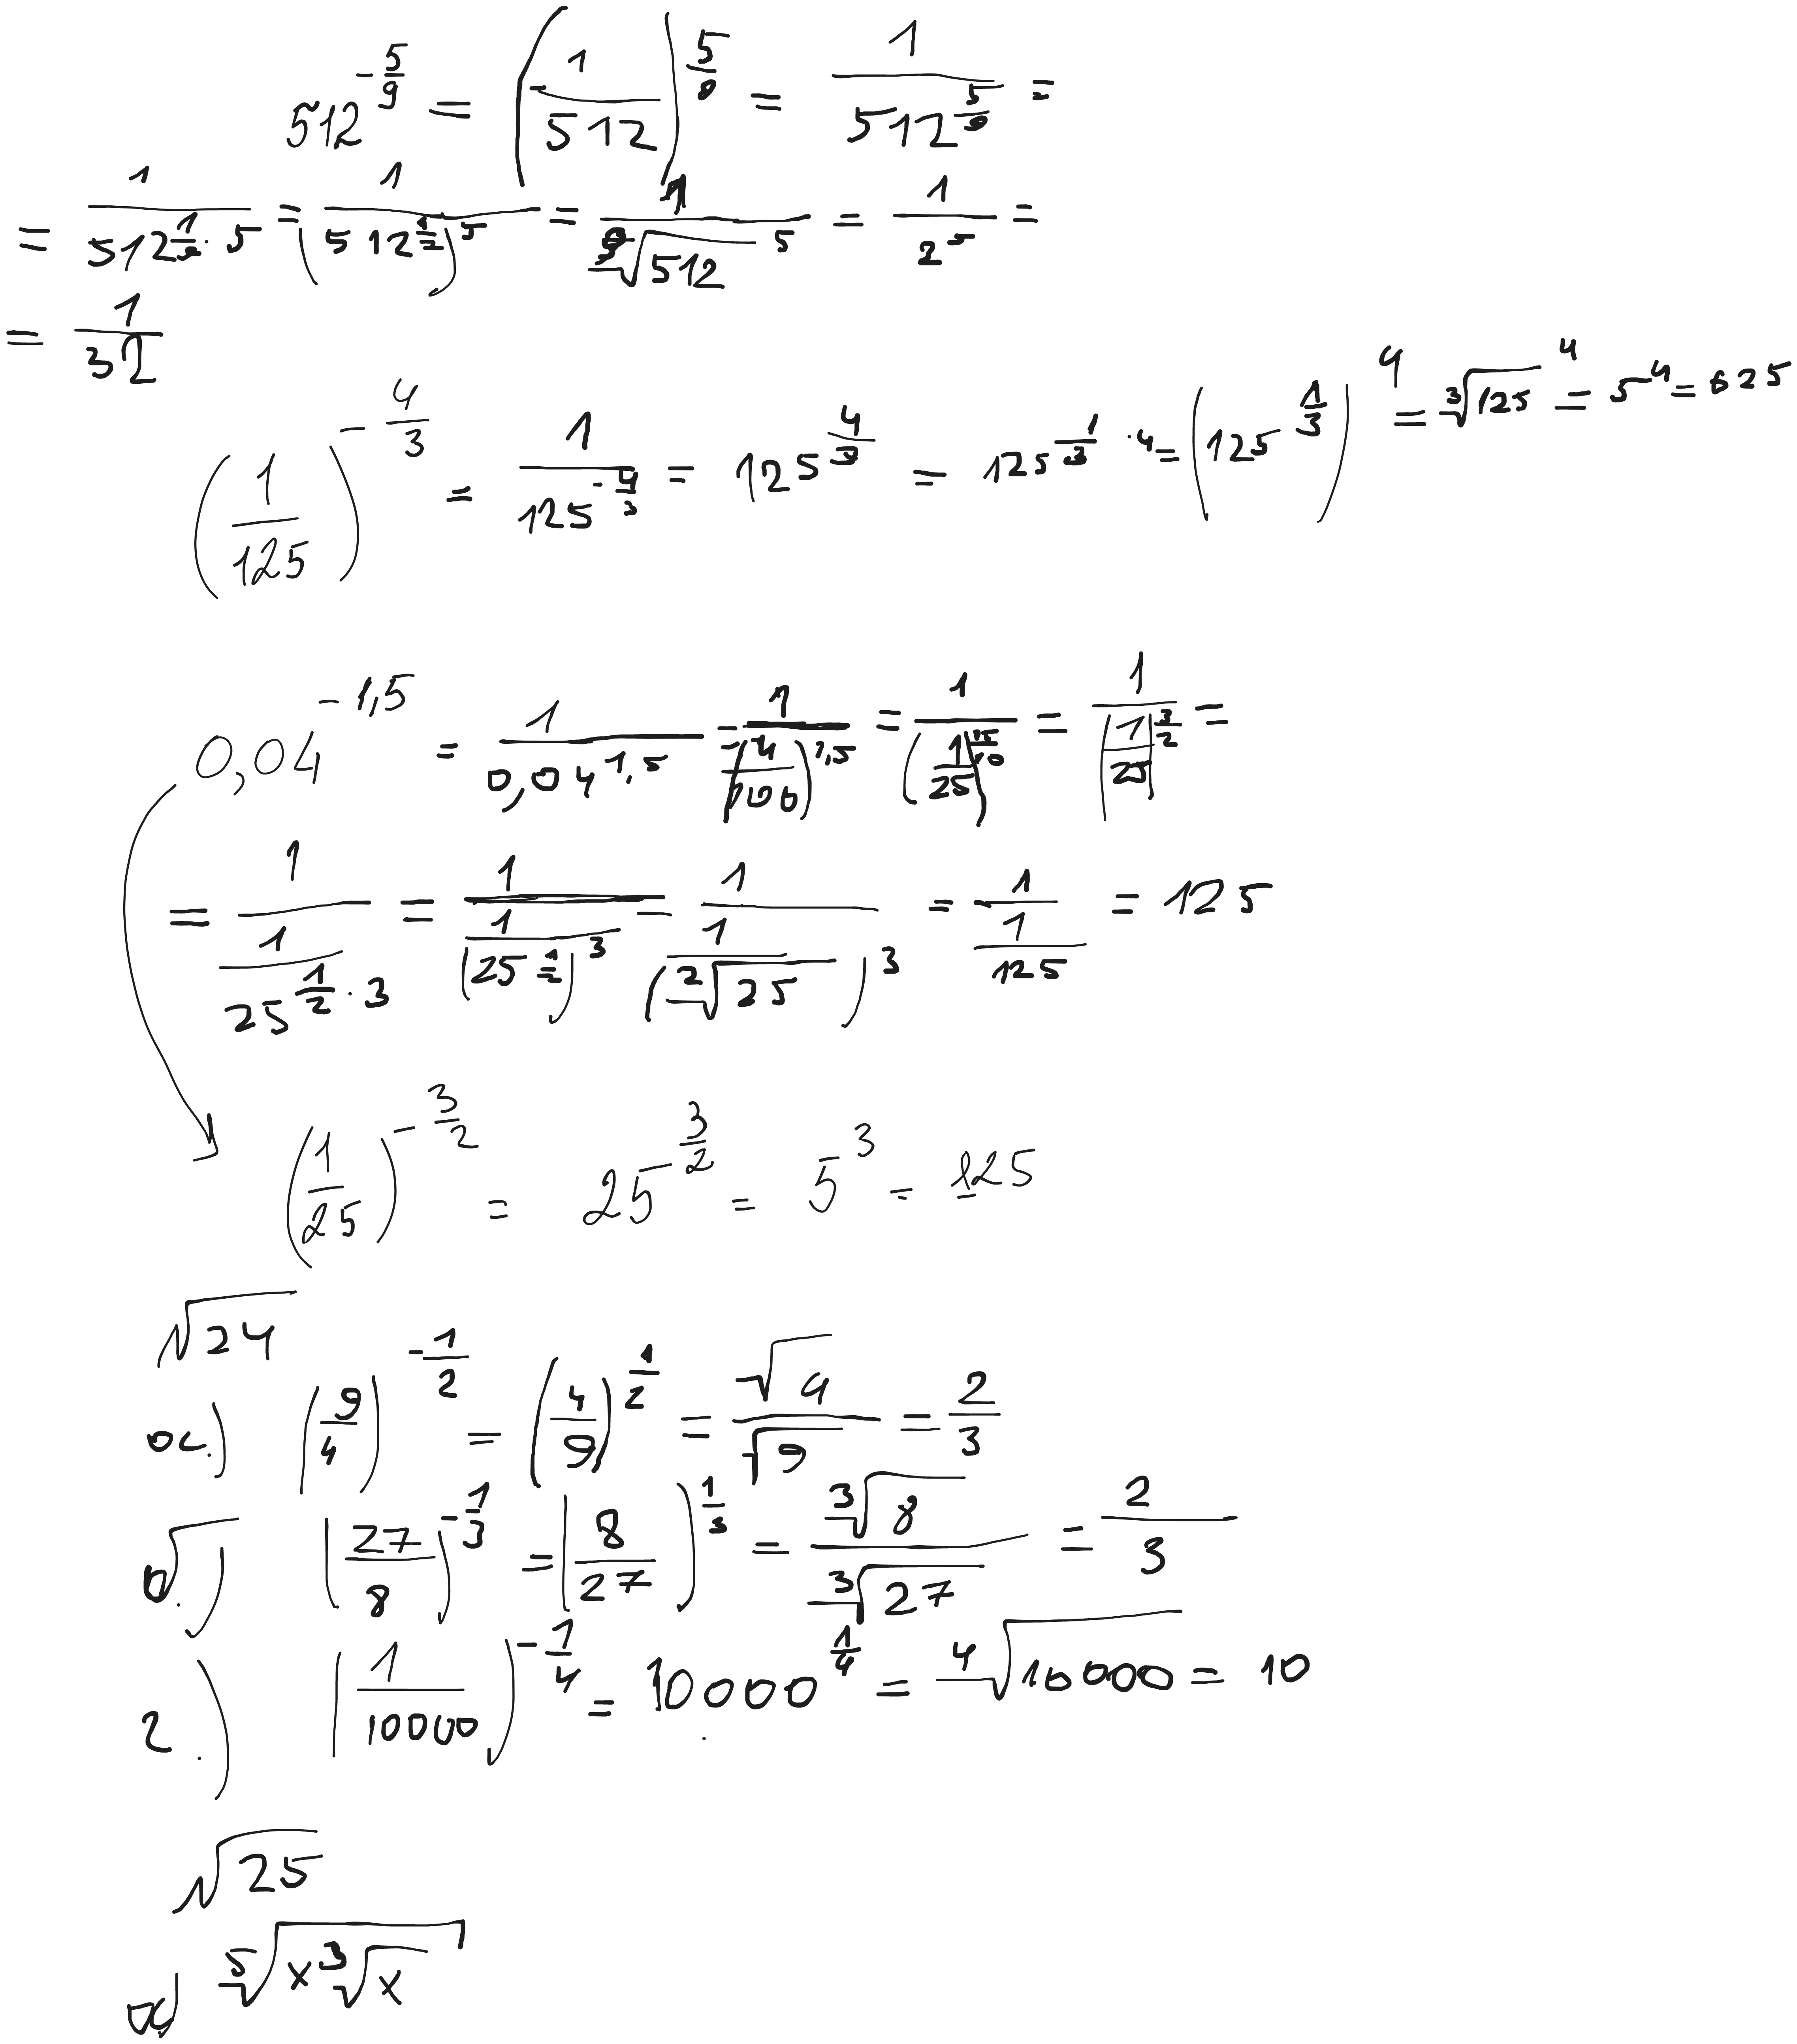 512^{-\frac{5}{9}} = \left(\frac{1}{512}\right)^{\frac{5}{9}} = \frac{1}{512^{\frac{5}{9}}} =
= \frac{1}{512^{\frac{1}{9} \cdot 5}} = \frac{1}{(512^{\frac{1}{9}})^5} = \frac{1}{\sqrt[9]{512}^5} = \frac{1}{2^5} =
= \frac{1}{32}
\left(\frac{1}{125}\right)^{-\frac{4}{3}} = \frac{1}{125^{-\frac{4}{3}}} = 125^{\frac{4}{3}} = 125^{\frac{1}{3} \cdot 4} = \left(125^{\frac{1}{3}}\right)^4 = \sqrt[3]{125}^4 = 5^4 = 625
0,04^{-1,5} = \frac{1}{0,04^{1,5}} = \frac{1}{\left(\frac{4}{100}\right)^{1,5}} = \frac{1}{\left(\frac{1}{25}\right)^{\frac{15}{10}}} = \frac{1}{\left(\frac{1}{25}\right)^{\frac{3}{2}}} =
= \frac{1}{\frac{1}{25^{\frac{1}{2} \cdot 3}}} = \frac{1}{\frac{1}{(25^{\frac{1}{2}})^3}} = \frac{1}{\frac{1}{(\sqrt[2]{25})^3}} = \frac{1}{\frac{1}{125}} = 125
\left(\frac{1}{25}\right)^{-\frac{3}{2}} = 25^{\frac{3}{2}} = 5^3 = 125
√24
a.) \left(\frac{9}{4}\right)^{-\frac{1}{2}} = \left(\frac{4}{9}\right)^{\frac{1}{2}} = \frac{\sqrt{4}}{\sqrt{9}} = \frac{2}{3}
\left(\frac{27}{8}\right)^{-\frac{1}{3}} = \left(\frac{8}{27}\right)^{\frac{1}{3}} = \frac{\sqrt[3]{8}}{\sqrt[3]{27}} = \frac{2}{3}
2.) \left(\frac{1}{10000}\right)^{-\frac{1}{4}} = 10000^{\frac{1}{4}} = \sqrt[4]{10000} = 10
√25
a) \sqrt[5]{x\sqrt[3]{x}}